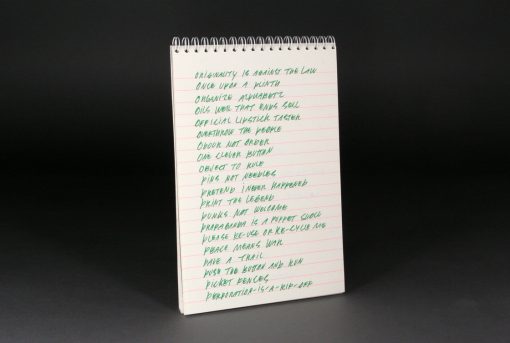 ORIGINALITY IS AGAINST THE LAW
ONCE UPON A PLINTH
ORGANIZE ALPHABETS
OILS WELL THAT ENDS WELL
OFFICIAL LIPSTICK TASTER
OVERTHROW THE PEOPLE
ODOUR NOT ORDER
ONE CLEVER BUTTON
OBJECT TO RULE
PINS NOT NEEDLES
PRETEND I NEVER HAPPENED
PRINT THE LEGEND
PUNKS NOT WELCOME
PROPAGANDA IS A PUPPET SHOW
PLEASE RE-USE OR RE-CYCLE ME
PEACE MEANS WAR
PAVE A TRAIL
PUSH THE BUTTON AND RUN
PICKET FENCES
PERFORATION-IS-A-RIP-OFF